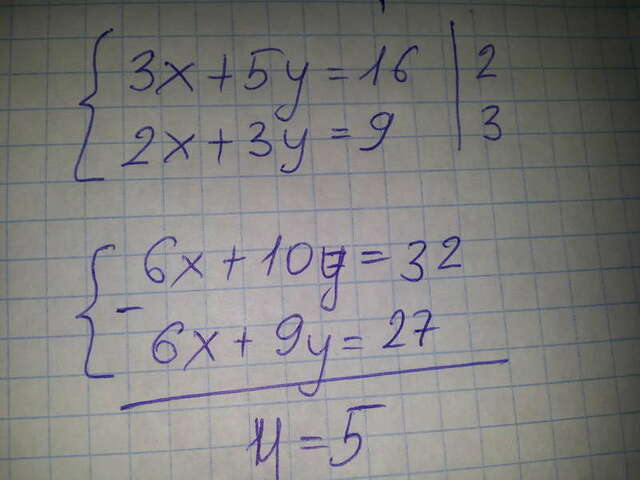 3x+5y=16 | 2
2x+3y=9 | 3
6x+10y=32
-
6x+9y=27
y=5